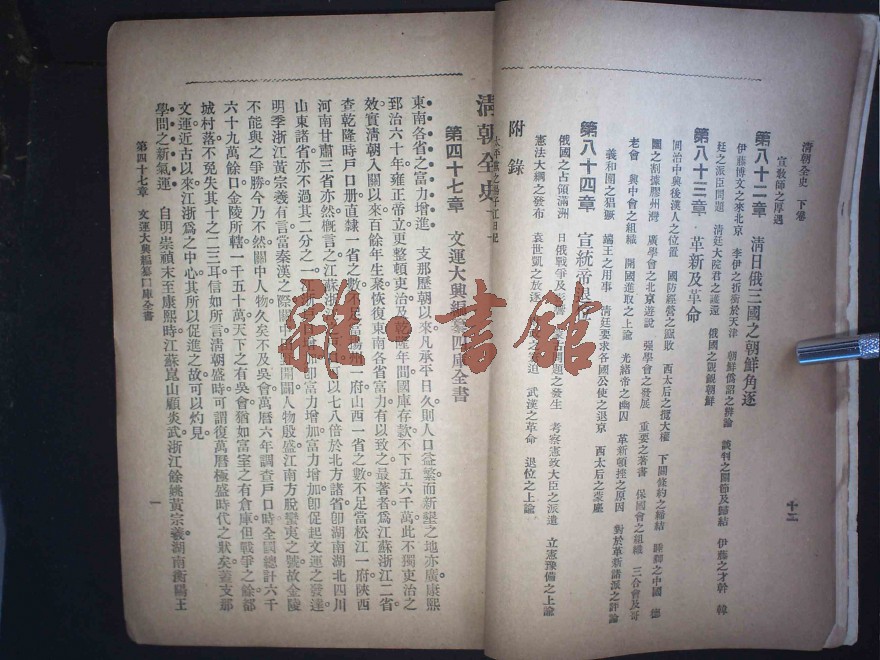 清朝全史 下卷
宣敎師之厚遇
第八十二章 淸日俄三國之朝鮮角逐
伊藤博文之來北京 李伊之折衝於天津 朝鮮僞詔之辨論 談判之關節及歸結 伊藤之才幹 韓
廷之派臣問題 清廷大院君之護還 俄國之覬覦朝鮮
第八十三章 革新及革命
同治中興後漢人之位置 國防經營之腐敗 西太后之攬大權 下關條約之締結 睡獅之中國 德
國之割據膠州灣 廣學會之北京遊說 强學會之發展 重要之著書 保國會之組織 三合會及哥
老會 興中會之組織 開國進取之上諭 光緖帝之幽囚 革新頓挫之原因 對於革新諸派之評論
義和團之猖獗 端王之用事 淸廷要求各國公使之退京 西太后之蒙塵
第八十四章 宣統帝退位
俄國之占領滿洲 日俄戰爭及 問題之發生 考察憲政大臣之派遣 立憲豫備之上諭
憲法大綱之發布 袁世凱之放逐 迫 武漢之革命 退位之上諭
附錄
太平黨之揚子江日記
十二
淸朝全史
第四十七章 文運大興編纂四庫全書
東南各省之富力增進 支那歷朝以來凡承平日久則人口益繁而新墾之地亦廣康熙
郅治六十年雍正帝立更整頓吏治及乾隆年間國庫存款不下五六千萬此不獨吏治之
效實淸朝入關以來百餘年生聚恢復東南各省富力有以致之最著者爲江蘇浙江二省
查乾隆時戶口册直隸一省之數不足當揚州一府山西一省之數不足當松江一府陝西
河南甘肅三省亦然槪言之江蘇浙 以七八倍於北方諸省卽湖南湖北四川
山東諸省亦不過其二分之一 卽富力增加富力增加卽促起文運之發達
明季浙江黃宗羲有言當秦漢之際關中 開闢人物殷盛江南方脫蠻夷之號故金陵
不能與之爭勝今乃不然關中人物久矣不及吳會萬曆六年調查戶口時全國總計六千
六十九萬餘口金陵所轄一千五十萬天下之有吳會猶如富室之有倉庫但戰爭之餘都
城村落不免失其十之二三耳信如所言淸朝盛時可謂復萬曆極盛時代之狀矣蓋支那
文運近古以來江浙爲之中心其所以促進之故可以灼見
學問之新氣運 自明崇禎末至康熙時江蘇崑山顧炎武浙江餘姚黃宗羲湖南衡陽王
第四十七章 文運大興編纂四庫全書
一
雜·書館